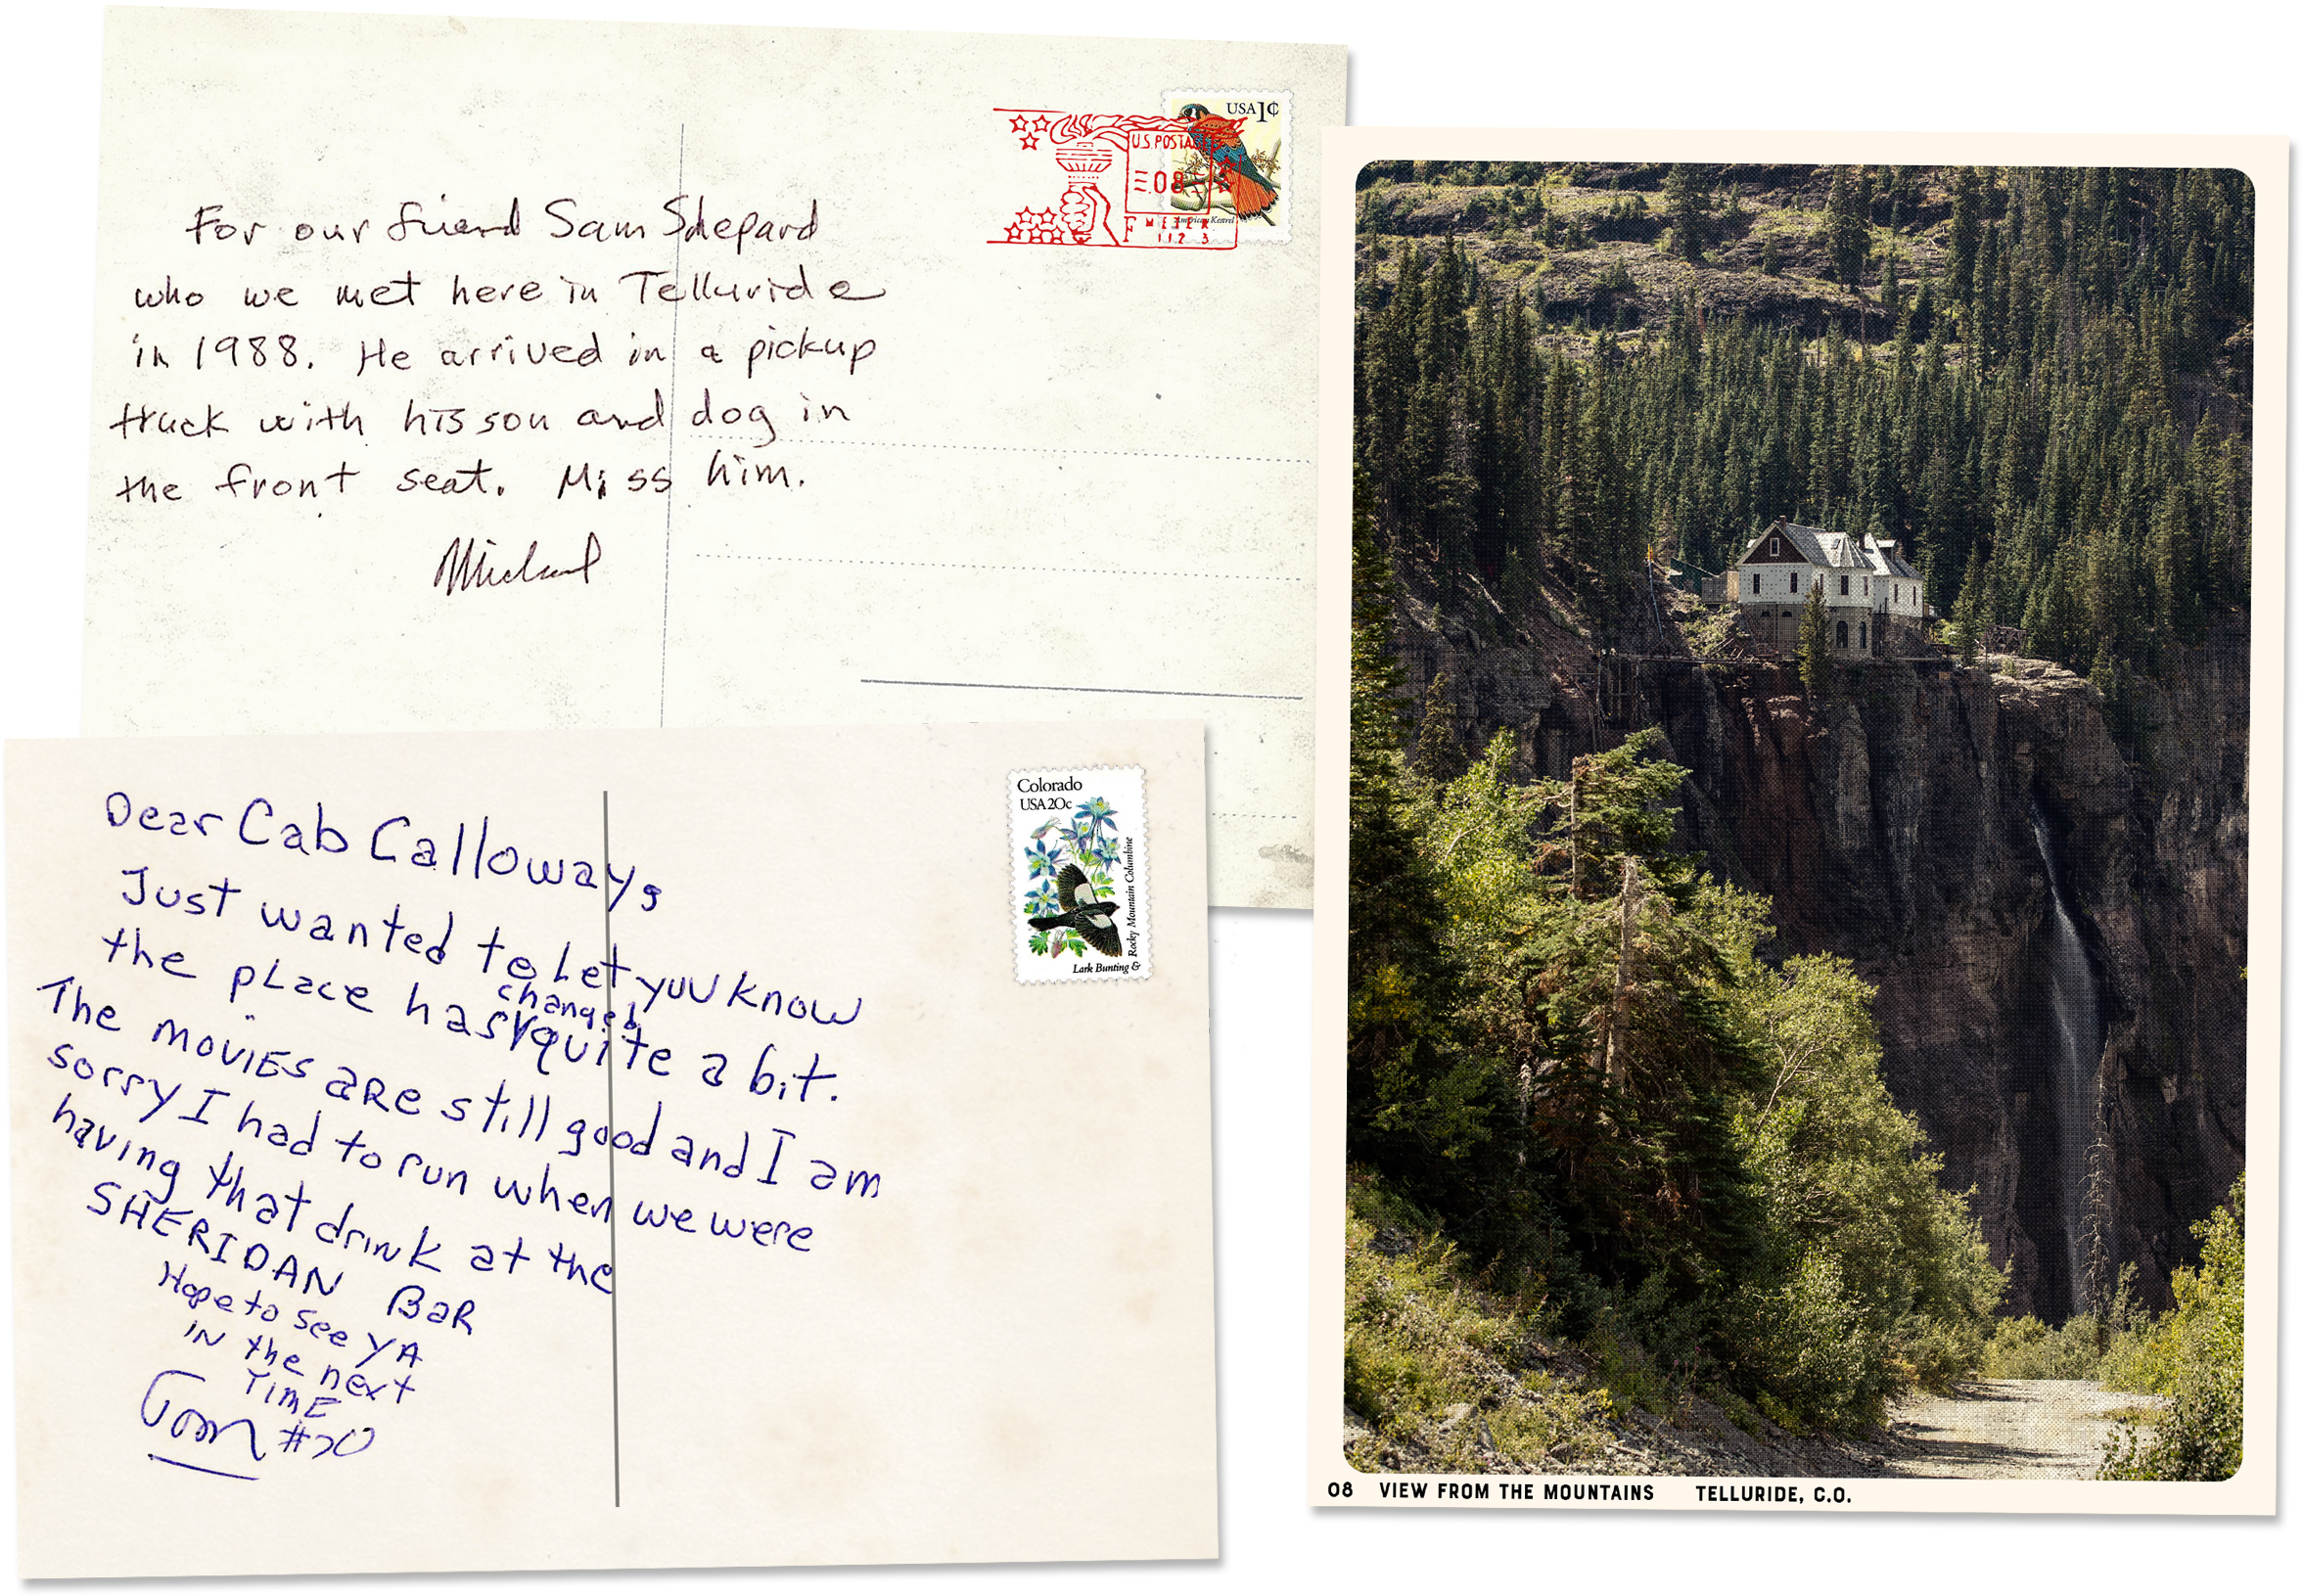 USA 1¢
U.S. POSTA
.08
American Kestrel
F METER
112 3
For our friend Sam Shepard
who we met here in Telluride
in 1988. He arrived in a pickup
truck with his son and dog in
the front seat. Miss him.
Michael
Colorado
USA 20c
Rocky Mountain Columbine
Lark Bunting &
Dear Cab Calloway,
Just wanted to let you know
the place has changed quite a bit.
The movies are still good and I am
sorry I had to run when we were
having that drink at the
SHERIDAN BAR
Hope to see YA
IN the next
TIME
Tom #20
08 VIEW FROM THE MOUNTAINS TELLURIDE, C.O.